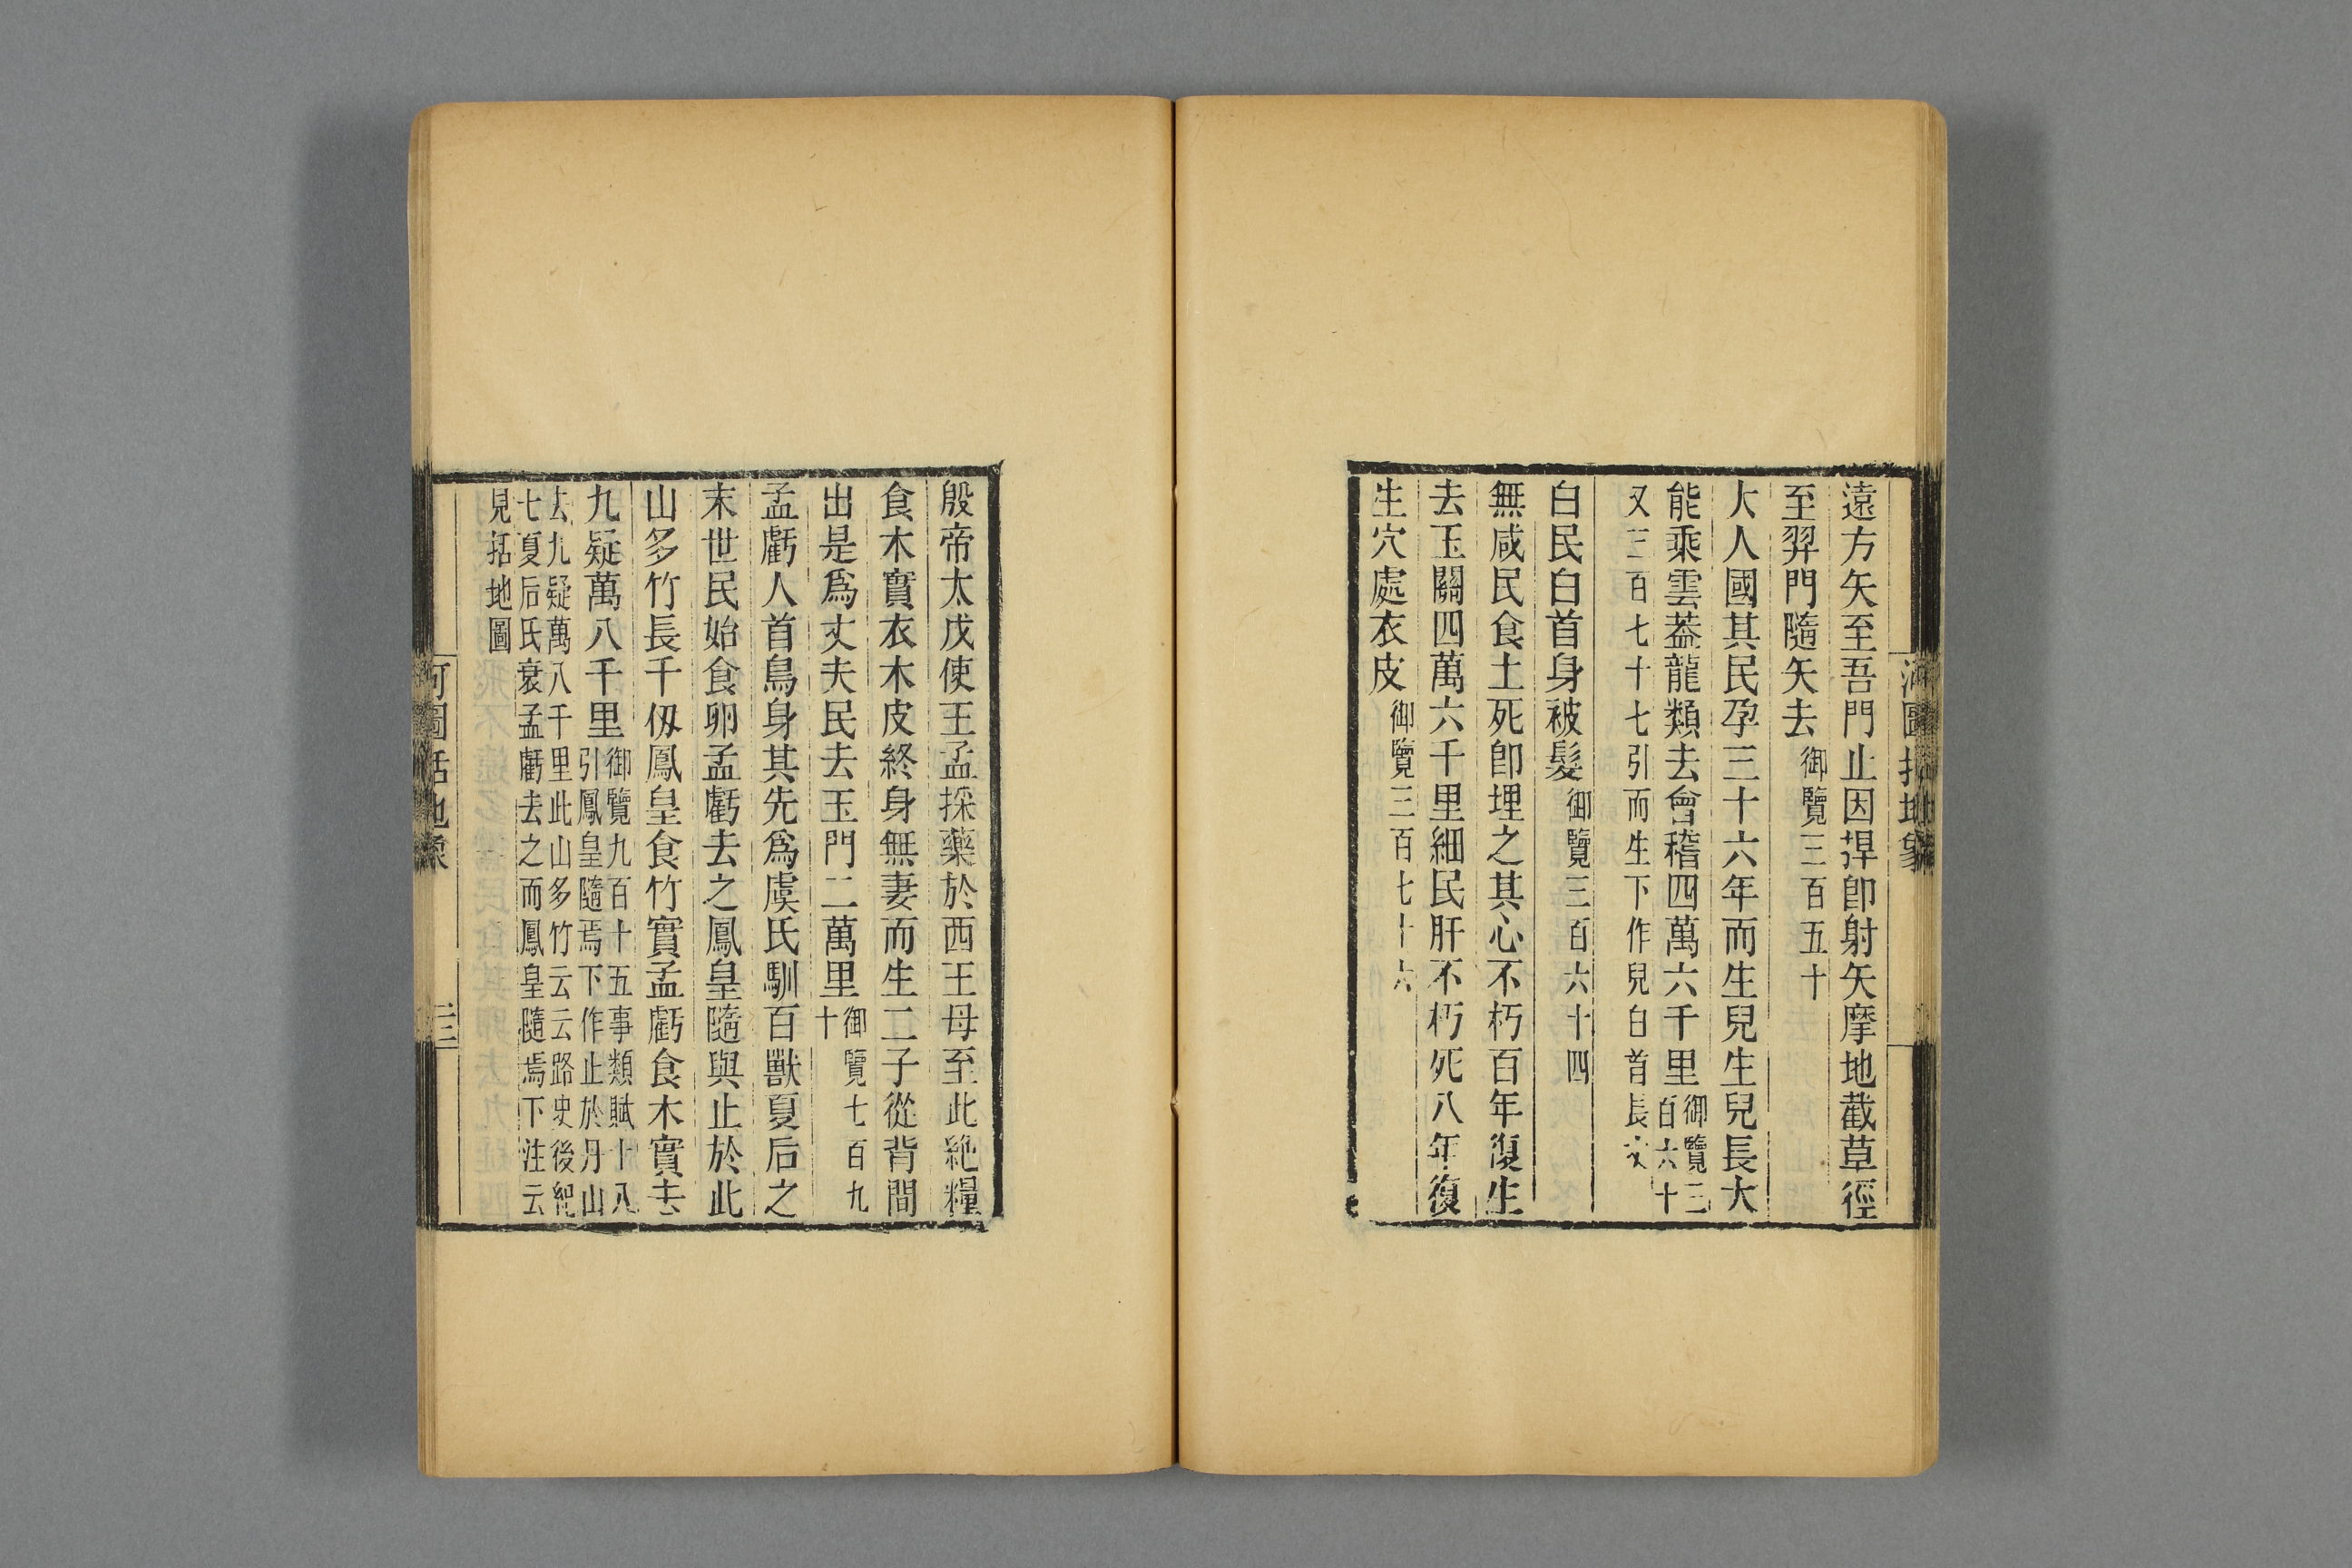 河圖括地象
遠方矢至吾門止因捍卽射矢摩地截草徑
至羿門隨矢去御覽三百五十
大人國其民孕三十六年而生兒生兒長大
能乘雲蓋龍類去會稽四萬六千里御覽三百六十
又三百七十七引而生下作兒白首長丈
白民白首身被髮御覽三百六十四
無咸民食土死卽埋之其心不朽百年復生
去玉關四萬六千里細民肝不朽死八年復
生穴處衣皮御覽三百七十六
殷帝太戊使王孟採藥於西王母至此絶糧
食木實衣木皮終身無妻而生二子從背間
出是爲丈夫民去玉門二萬里御覽七百九十
孟虧人首鳥身其先爲虞氏馴百獸夏后之
末世民始食卵孟虧去之鳳皇隨與止於此
山多竹長千仭鳳皇食竹實孟虧食木實去
九疑萬八千里御覽九百十五事類賦十八
引鳳皇隨焉下作止於丹山
去九疑萬八千里此山多竹云云路史後紀
七夏后氏衰孟虧去之而鳳皇隨焉下注云
見括地圖
河圖括地象
三